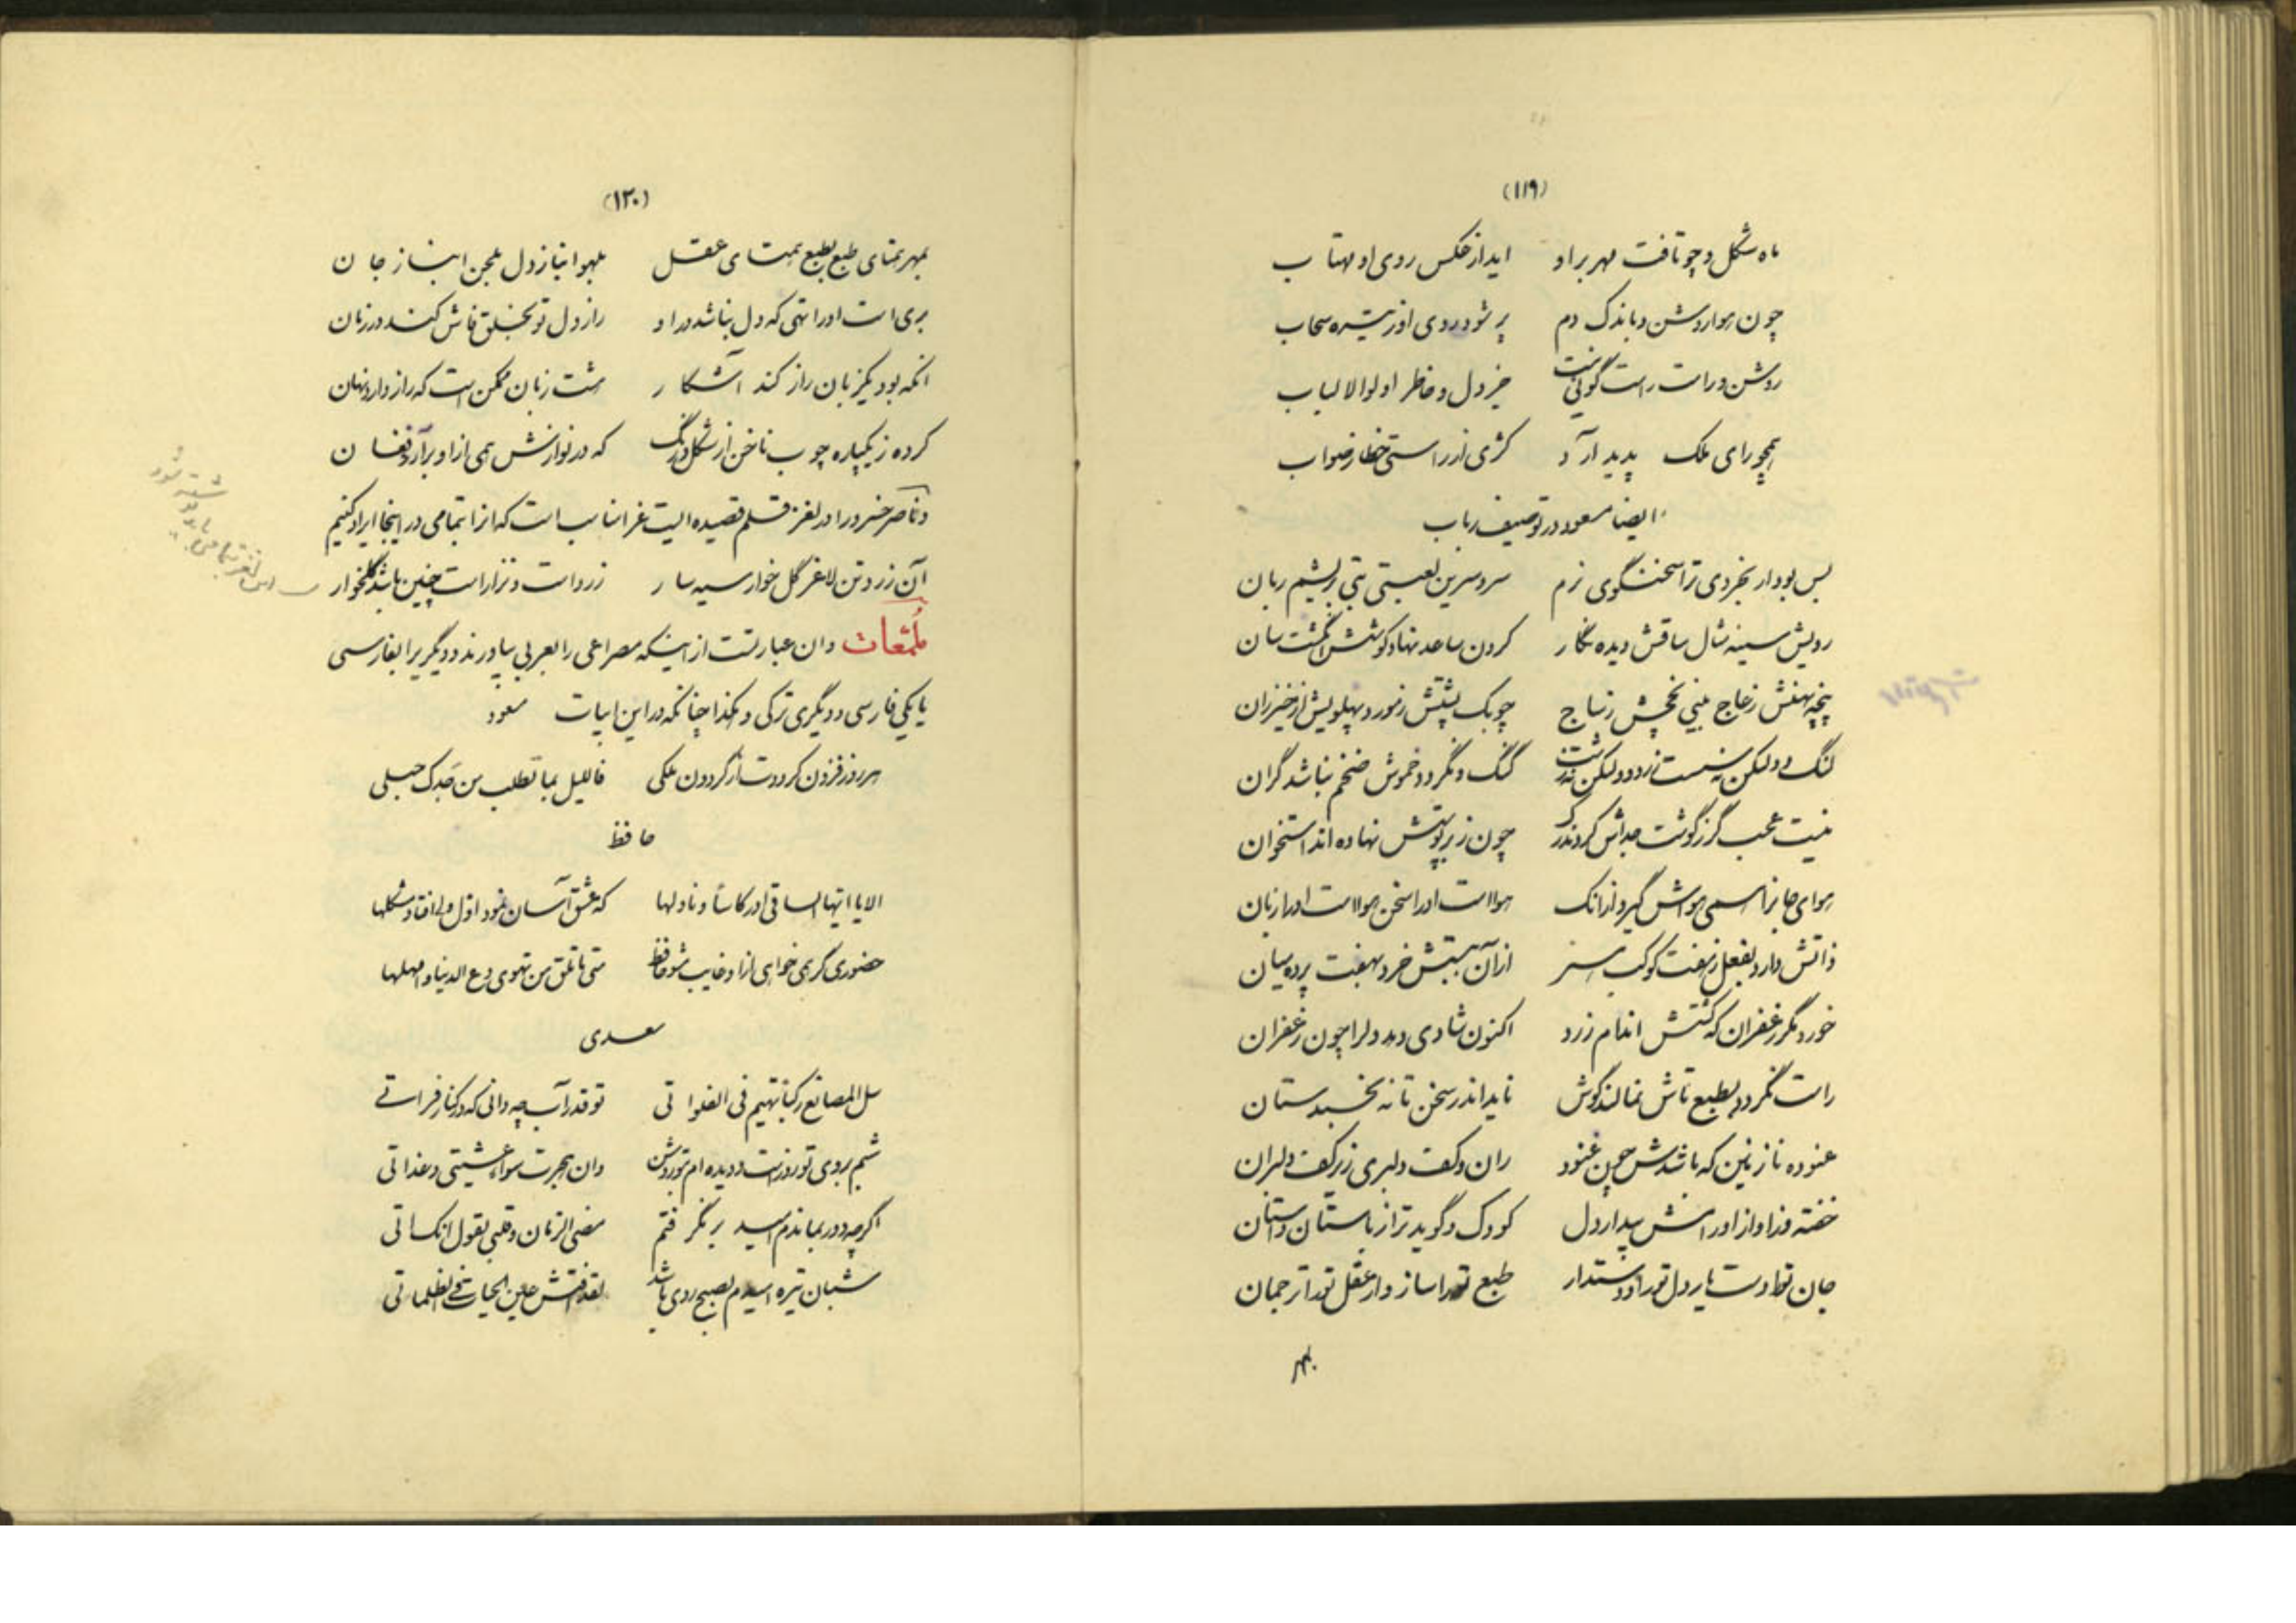 (۱۱۹)
ماه شکل و چو تافت مهر بر او آید از عکس روی او مهتاب
چون هوا روشن و باندک دم پر شود روی او ز تیره سحاب
روشن و راست راست گوئی نیست جز دل و خاطر اولوالالباب
همچو رای ملک پدید آرد کژی از راستی خطا ز صواب
ایضا مسعود در توصیف رباب
بس بود ار بخردی ترا سخنگوی زم سرو سرین لعبتی بتی بریشم زبان
رویش سینه مثال ساقش دیده نگار گردن ساعد نهاد گوشش انگشت سان
پنجه پهنش ز عاج بینی پخچش ز ساج چوبک پشتش ز مورد پهلویش از خیزران
گنگ و نگردد خموش ضخم نباشد گران
نیست عجب گر ز گوشت جدایش کردند چون ز بر پوستش نهاده اند استخوان
هواست او را سخن هواست او را زبان
ذاتش دارد بفعل ز هفت کوکب اثر از آن ببستش خرد بهفت پرده میان
خورد مگر زعفران که گشتش اندام زرد اکنون شادی دهد دلرا چون زعفران
راست نگردد بطبع تاش نمالند گوش ناید اندر سخن تا نه بخسبد ستان
غنوده نازنین که باشدش چون غنود ران و کف دلبری زیر کف دلبران
کودک و گوید ترا ز باستان داستان
جان تو را دوست یار دل تو را دوستدار طبع تو را ساز وار عقل تو را ترجمان
بهر
(۱۲۰)
بمهر همتای طبع بطبع همتای عقل بلهو انباز دل بلحن انباز جان
بری است او را تهی که دل نباشد در او راز دل تو بخلق فاش کند در زمان
آنکه بود یکزبان راز کند آشکار هشت زبان ممکن است که راز دارد نهان
کرده ز یکپاره چوب ناخن از شکل و رنگ که در نوازنش همی از او برآرد فغان
و ناصر خسرو را در لغز قلم قصیده ایست غرا مناسب است که آنرا بتمامی در اینجا ایراد کنیم
آن زرد تن لاغر گل خوار سیه سار زرد است و نزار است چنین باشد گلخوار
این لغز بتمامی باید نوشته شود
ملمّعات وان عبارتست از اینکه مصراعی را بعربی بیاورند و دیگریرا بفارسی
یا یکی فارسی و دیگری ترکی و هکذا چنانکه در این ابیات مسعود
هر روز فزون گرددت از گردون ملکی فاللیل بما تطلب من جدک حبلی
حافظ
الا یا ایها الساقی ادر کاسا و ناولها که عشق آسان نمود اول ولی افتاد مشکلها
حضوری گر همی خواهی از او غایب مشو حافظ متی ما تلق من تهوی دع الدنیا و اهملها
سعدی
سل المصانع رکبا تهیم فی الفلواتی تو قدر آب چه دانی که در کنار فراتی
شبم بروی تو روز است و دیده ام بتو روشن وان هجرت سواء عشیتی و غداتی
اگر چه دور بماندم امید بر نگرفتم مضی الزمان و قلبی یقول انک آتی
شبان تیره امیدم بصبح روی تو باشد لقد تفتش عین الحیات فی الظلماتی